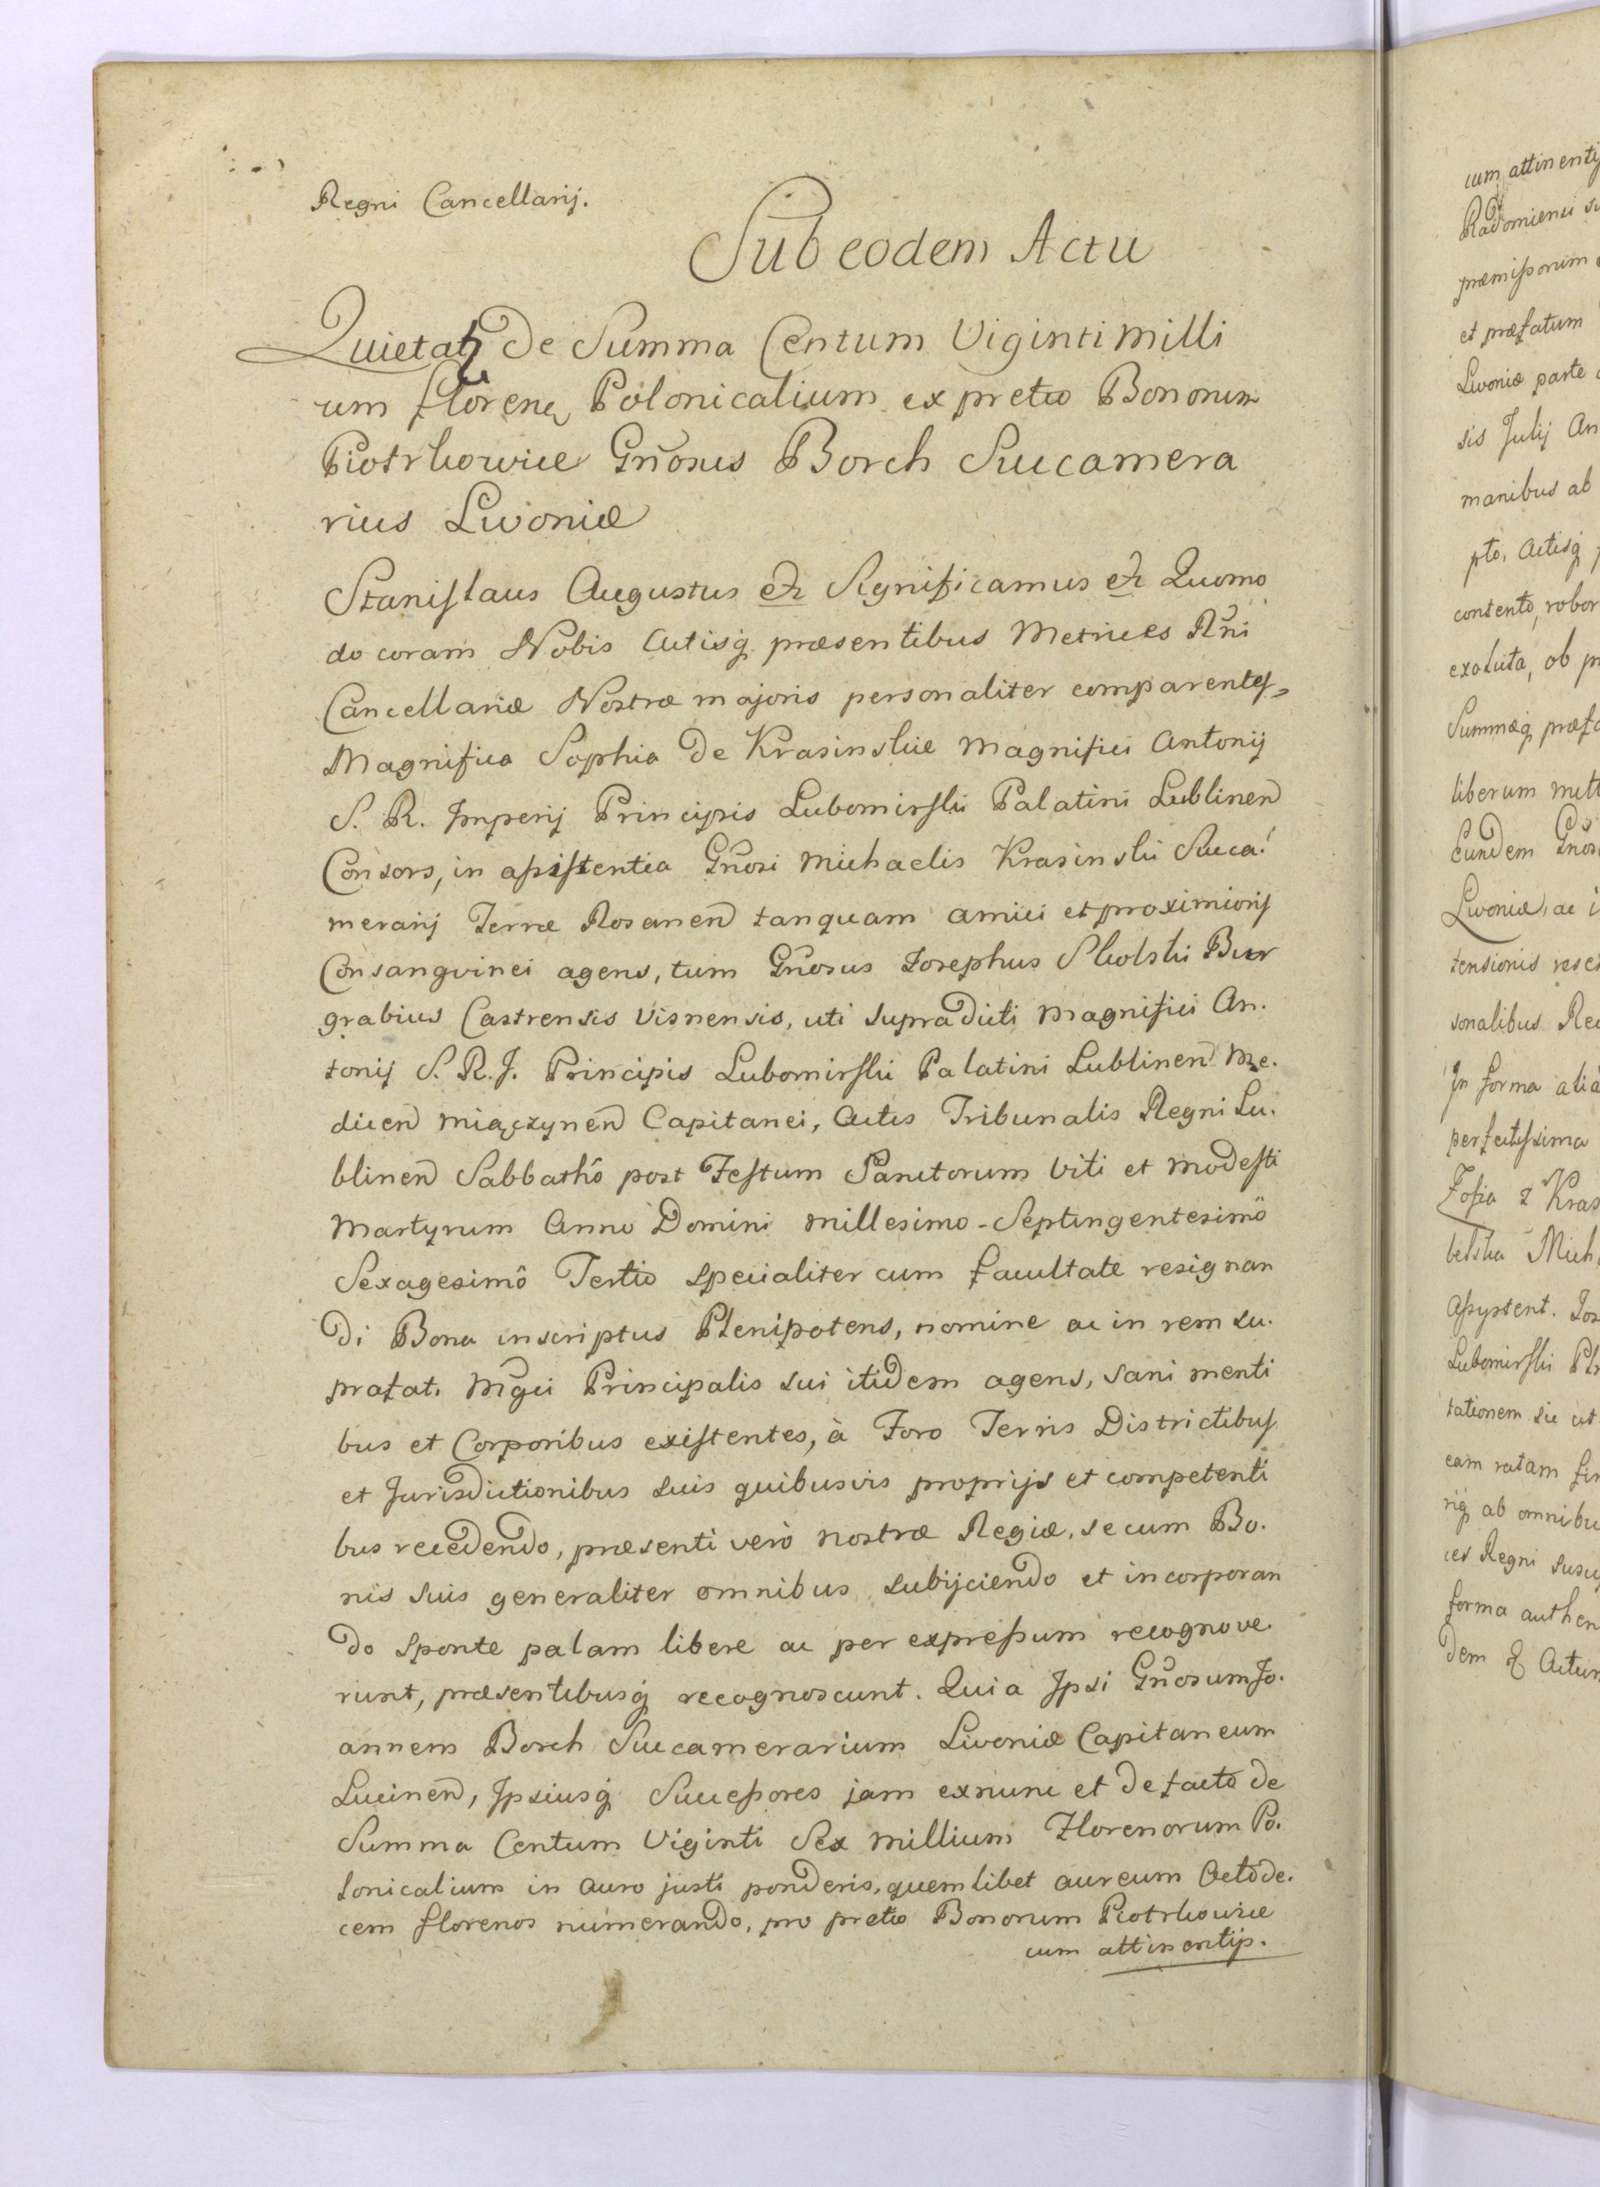 Regni Cancellarij.
Sub eodem Actu
Quietat de Summa Centum Viginti Milli
um floren Polonicalium ex pretio Bonorum
Piotrkowice Gñosus Borch Succamera
rius Livoniæ
Stanislaus Augustus etz Significamus etz Quomo
do coram Nobis Actisq præsentibus Metrices Rñi
Cancellariæ Nostræ majoris personaliter comparentes
Magnifica Sophia de Krasinskie Magnifici Antonij
S. R. Imperij Principis Lubomirski Palatini Lublinen
Consors, in assistentia Gñosi Michaelis Krasinski Succa
merarij Terræ Rosanen tanquam amici et proximioris
Consangvinei agens, tum Gñosus Josephus Skolski Bur
grabius Castrensis Visnensis, uti supradicti Magnifici An.
tonij S. R. J. Principis Lubomirski Palatini Lublinen Me.
dicen Miączynen Capitanei, Actis Tribunalis Regni Lu.
blinen Sabbathô post Festum Sanctorum Viti et Modesti
Martyrum Anno Domini Millesimo Septingentesimô
Sexagesimô Tertio specialiter cum facultate resignan
di Bona inscriptus Plenipotens, nomine ac in rem su.
prafat. Mgci Principalis sui itidem agens, sani menti
bus et Corporibus existentes, à Foro Terris Districtibus
et Jurisdictionibus suis quibusvis proprijs et competenti
bus recedendo, præsenti verò nostræ Regiæ, se cum Bo.
nis suis generaliter omnibus subijciendo et incorporan
do sponte palam libere ac per expressum recognove.
runt, præsentibusq recognoscunt. Quia Ipsi Gñosum Jo.
annem Borch Succamerarium Livoniæ Capitaneum
Lucinen, Ipsiusq Successores jam exnunc et de facto de
Summa Centum Viginti Sex Millium Florenorum Po.
lonicalium in auro justi ponderis, quemlibet aureum Octode.
cem florenos numerando, pro pretio Bonorum Piotrkowice
cum attinentijs.
cum attinentij
Radomiensi
præmissorum
et præfatum
Livoniæ parte
sis Julij An
manibus ab
pto, Actisq
contento, robor
exoluta, ob
Summæq præfa
liberum
Eundem Gños
Livoniæ, ac
tensionis
sonalibus Re
In forma alià
perfectissima
Zofia z Kras
belska Mich
Assystent. Jos
Lubomirski
tationem
eam ratam
ab omnibu
ces Regni
forma authen
dem Actum